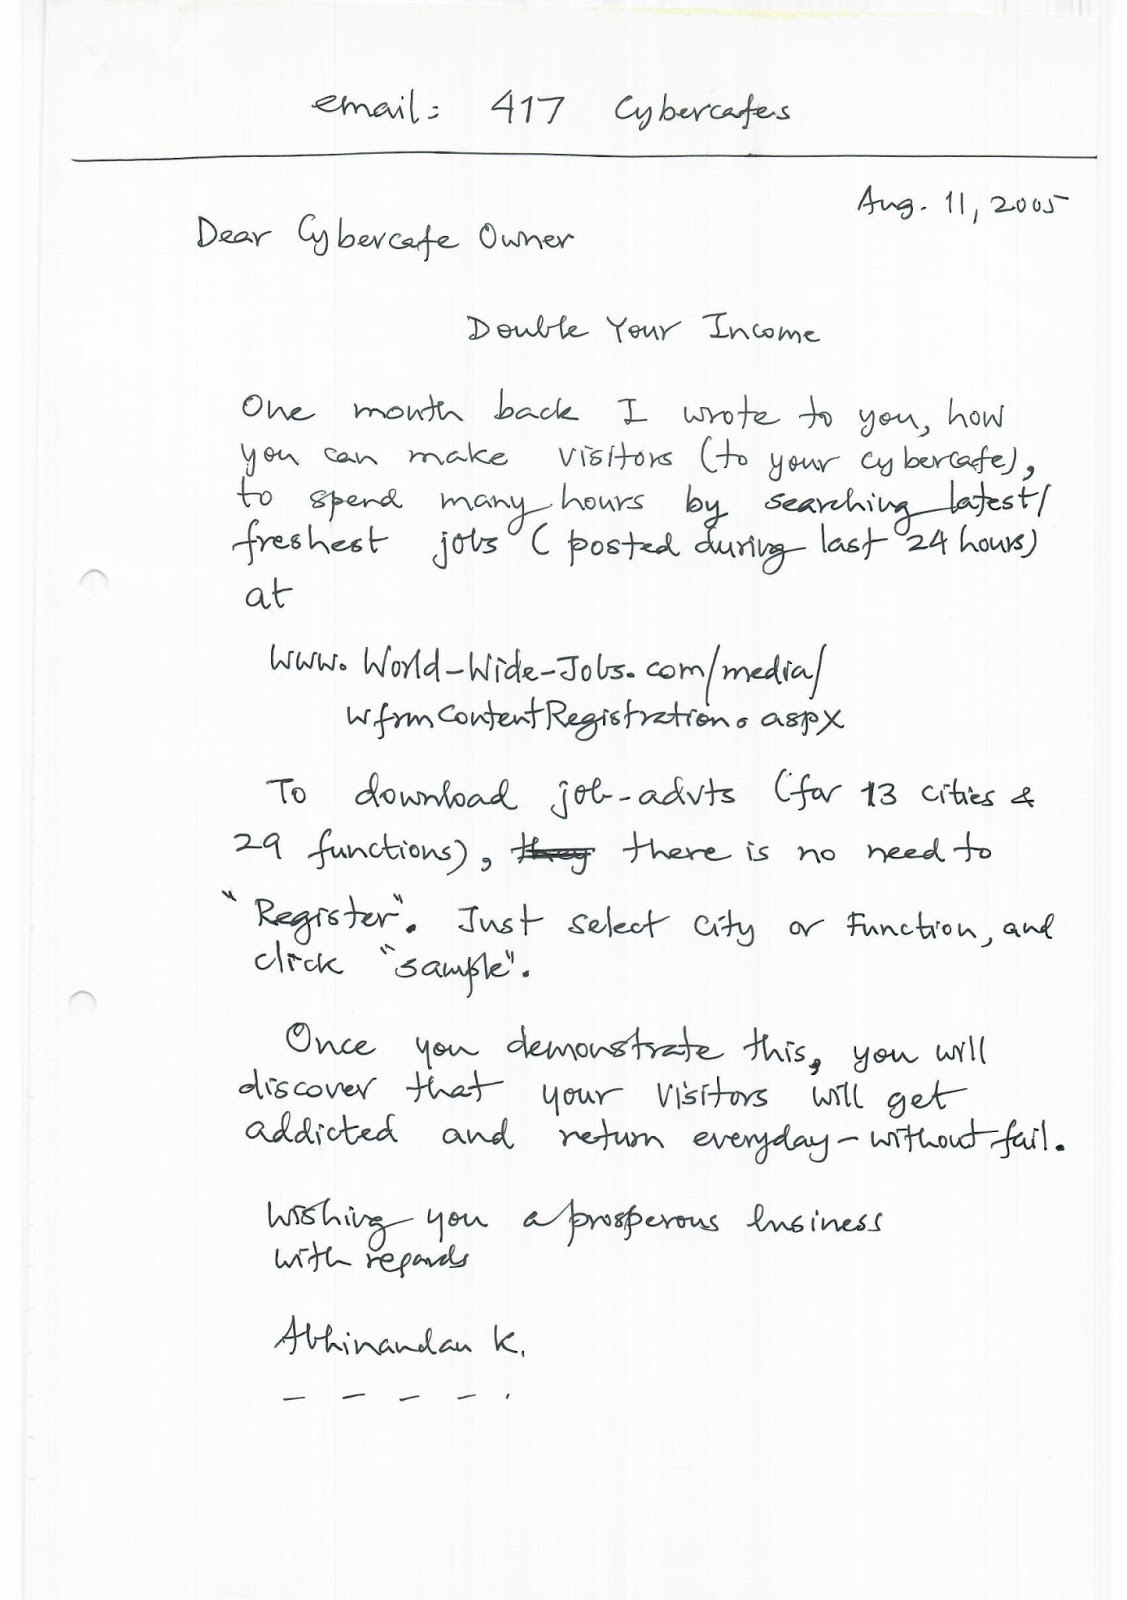 email: 417 Cybercafes
Aug. 11, 2005
Dear Cybercafe Owner
Double Your Income
One month back I wrote to you, how
you can make visitors (to your cybercafe),
to spend many hours by searching latest/
freshest jobs (posted during last 24 hours)
at
www.World-Wide-Jobs.com/media/
wfrmContentRegistration.aspx
To download job-advts (for 13 cities &
29 functions), they there is no need to
"Register". Just select City or Function, and
click "sample".
Once you demonstrate this, you will
discover that your visitors will get
addicted and return everyday - without fail.
Wishing you a prosperous business
with regards
Abhinandan K.